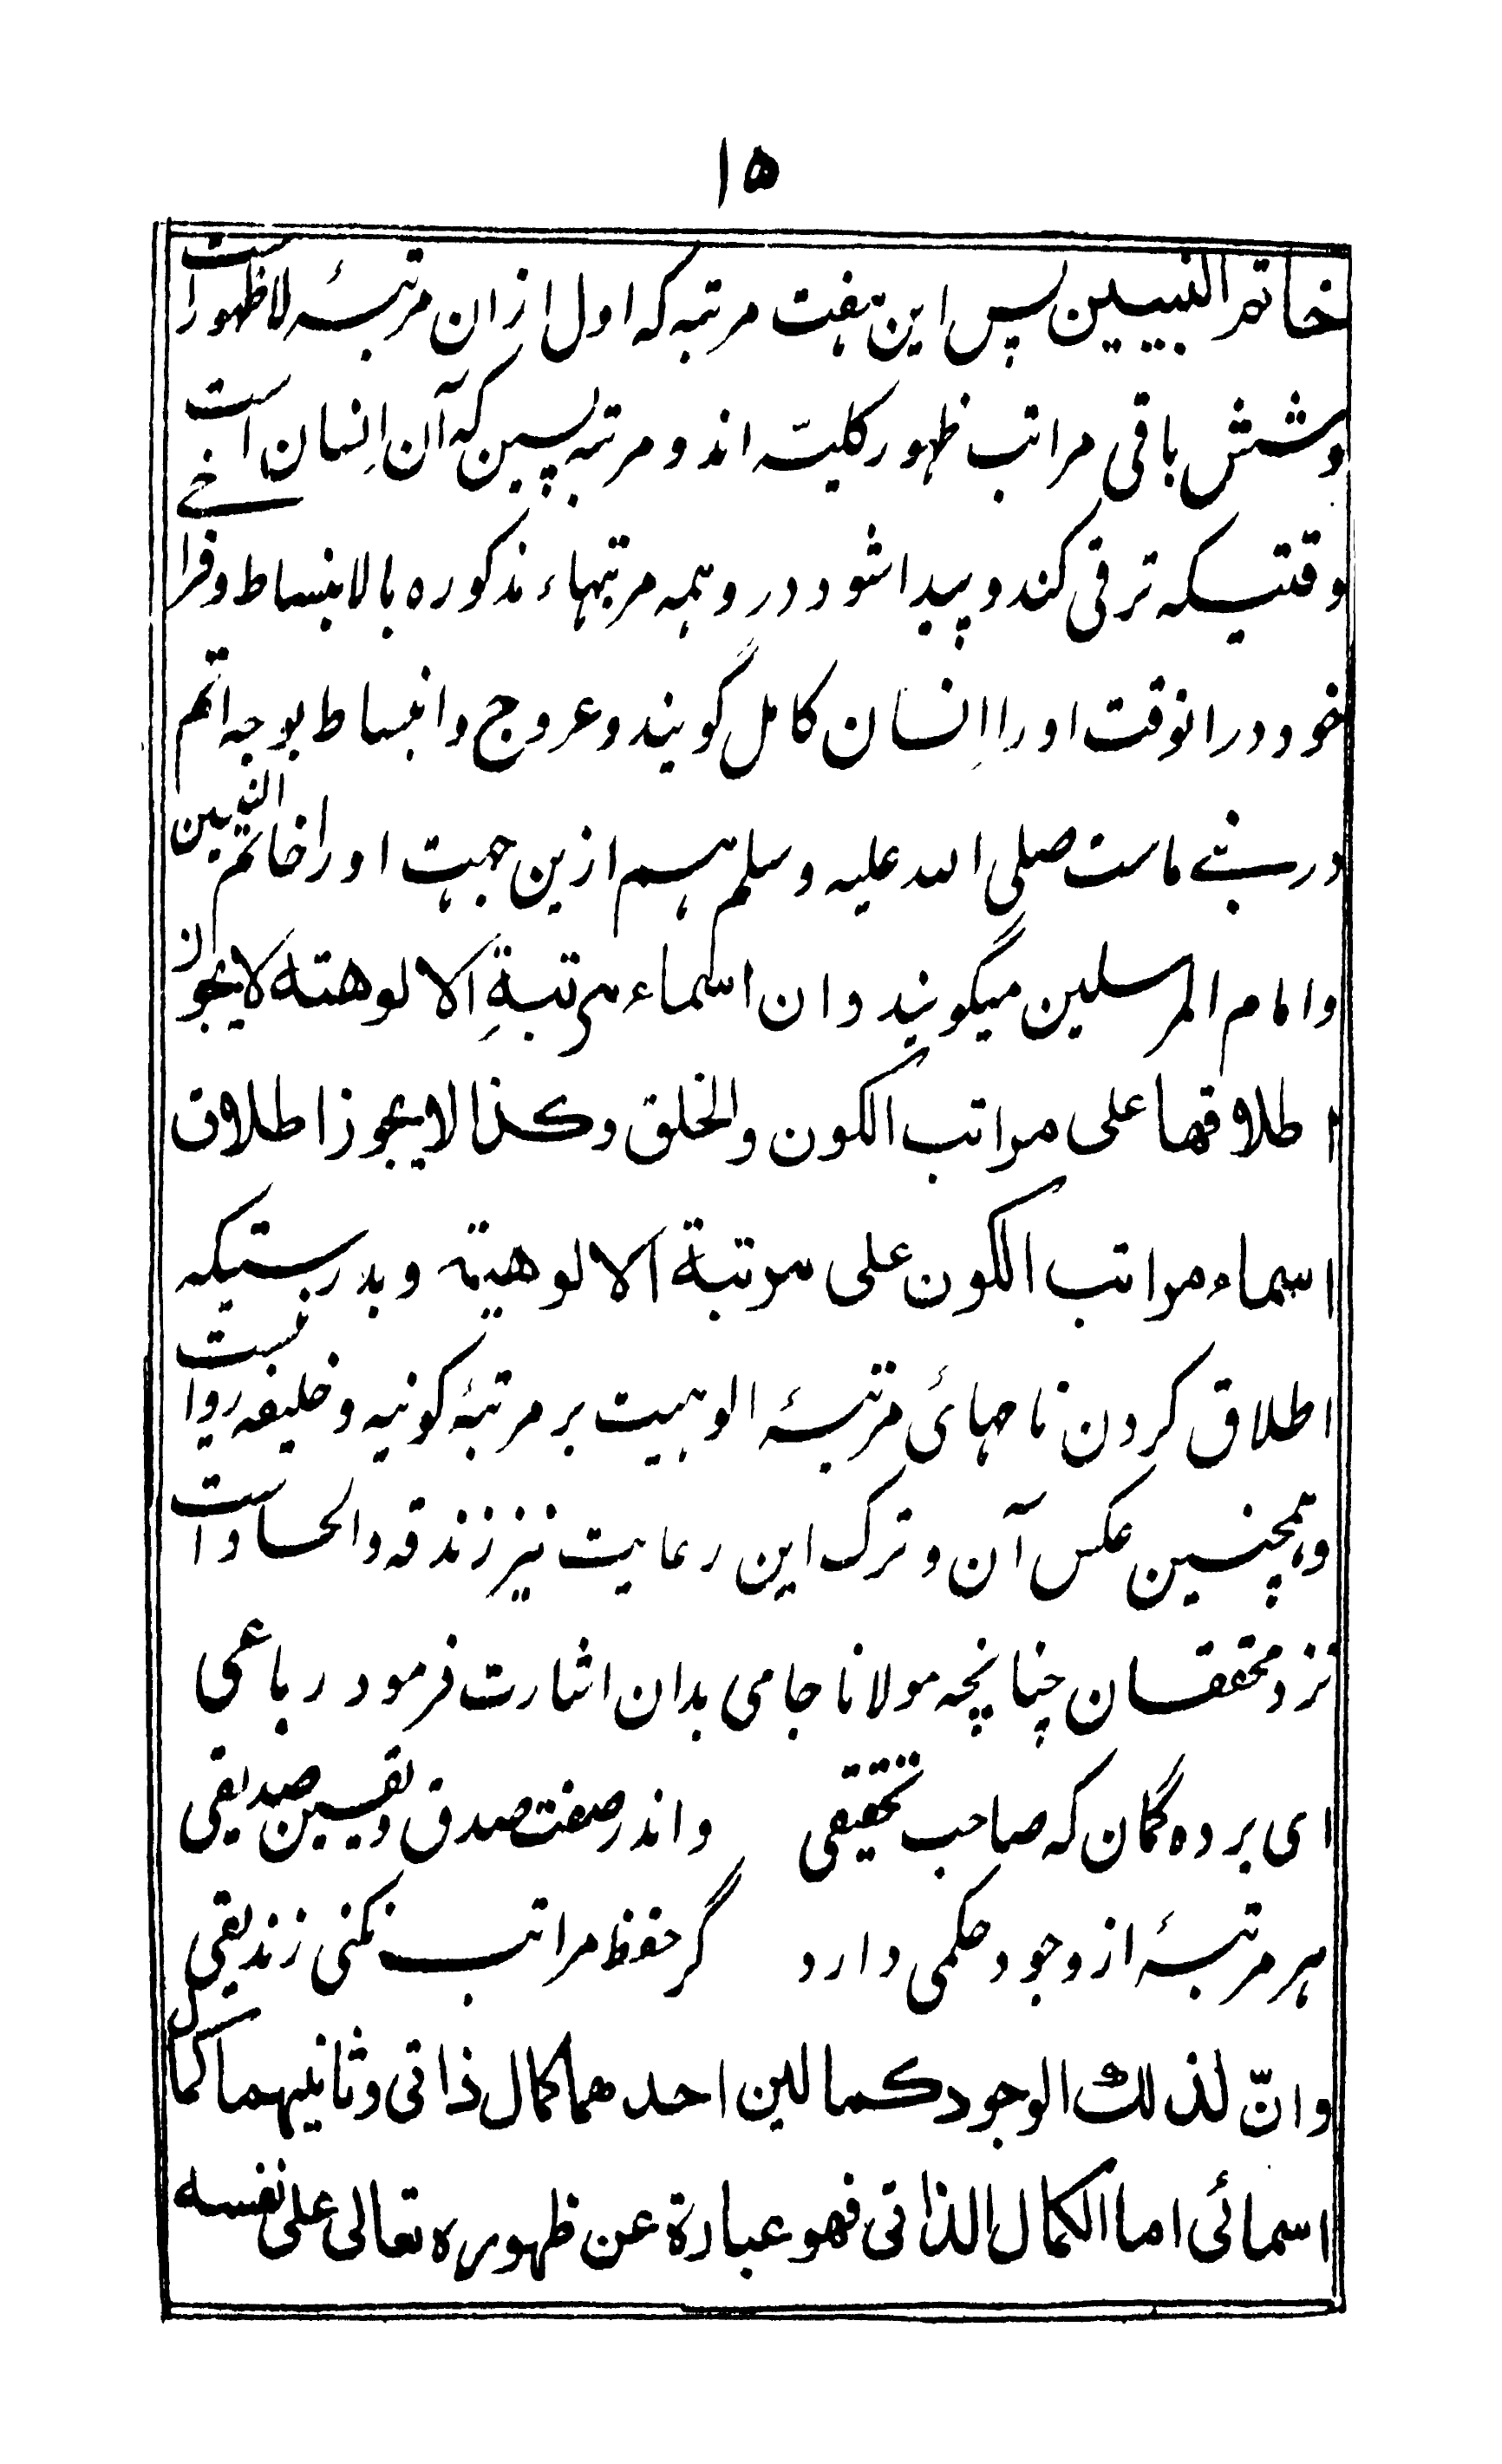 ۱۵
خاتم النبیین پس این هفت مرتبه که اول ازان مرتبۀ لا ظهور است
وشش باقی مراتب ظهور کلیّه اند و مرتبه پسین که آن اِنسان است
وقتیکه ترقی کند و پیدا شود درو همه مرتبهاء مذکوره بالا بنبساط و فراخے
خود درانوقت اورا اِنسان کامل گویند و عروج و انبساط بوجه اتم
در نبئے ماست صلی الله علیه وسلم هم ازین جهت اورا خاتم النبیین
وامام المرسلین میگویند وان اسماء مرتبةِ الالوهته لا یجوز
اطلاقها علی مراتب الکون والخلق وکذا لا یجوز اطلاق
اسماء مراتب الکون علی مرتبة الالوهیته وبدرستیکه
اطلاق کردن نامهائ مرتبۀ الوهیت بر مرتبۀ کونیه و خلیفه روا نیست
وهمچنین عکس آن و ترک این رعایت نیز زندقه والحاد است
نزد محققان چنانچه مولانا جامی بدان اشارت فرمود رباعی
ای برده گمان که صاحب تحقیقی واندر صفت صدق ویقین صدیقی
هر مرتبۀ از وجود حکمی دارد گر حفظ مراتب نکنی زندیقی
وانّ لذلك الوجود کمالین احدهما کمال ذاتی وثانیهما کمال
اسمائی اما الکمال الذاتی فهو عبارة عن ظهوره تعالی علی نفسه